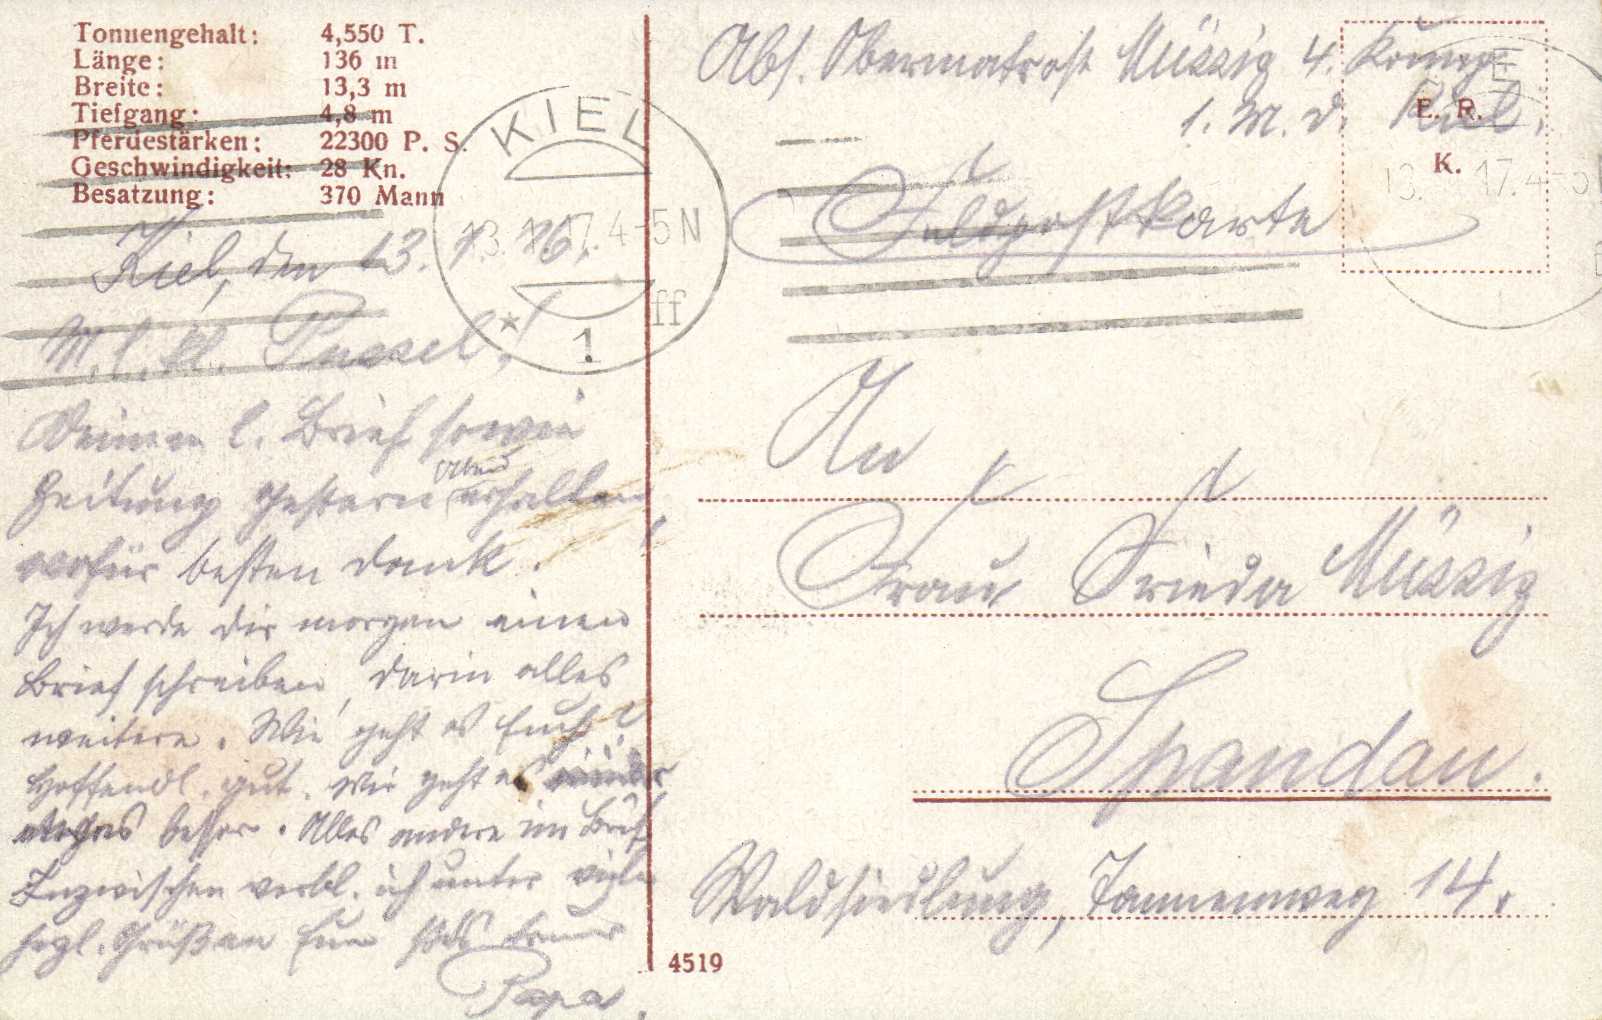 Tonnengehalt: 4,550 T.
Länge: 136 m
Breite: 13,3 m
Tiefgang: 4,8 m
Pferdestärken: 22300 P. S.
Geschwindigkeit: 28 Kn.
Besatzung: 370 Mann
KIEL
13. 1. 17. 4-5 N
* 1 ff
Kiel, den 13. 1.
M. l. kl. Pussel!
Deinen l. Brief sowie
Zeitung gestern Abend erhalten
wofür besten Dank.
Ich werde dir morgen einen
Brief schreiben, darin alles
weitere. Wie geht es Euch?
Hoffendl. gut. Mir geht es wieder
etwas besser. Alles andere im Brief
Inzwischen verbl. ich unter vielen
hrzl. Grüßen Euer stets treuer
Papa.
Abs. Obermatrose Müssig 4. Komp.
1. M. D. Kiel.
F. R.
K.
Feldpostkarte
An
Frau Frieda Müssig
Spandau.
Waldsiedlung, Tannenweg 14.
4519